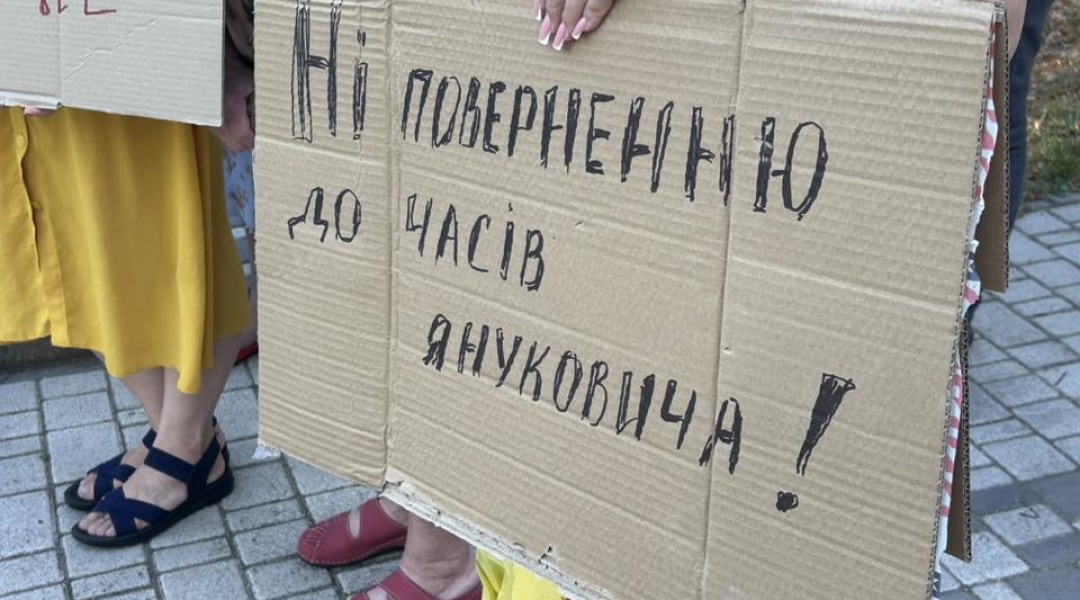 Ні ПОВЕРНЕННЮ
ДО ЧАСІВ
ЯНУКОВИЧА!